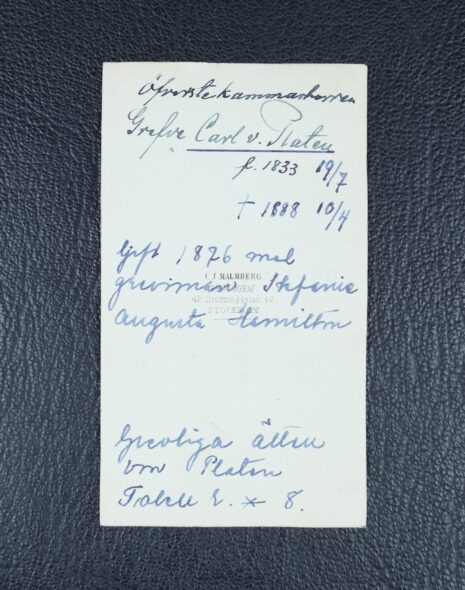 Öfverstekammarherren
Grefve Carl v. Platen
f. 1833 19/7
† 1888 10/4
Gift 1876 med
C J MALMBERG
grevinnan Stefanie
FOTOGRAF
42 Drottninggatan 42
STOCKHOLM
Augusta Hamilton
Grevliga ätten
von Platen
Tabell 2. * 8.